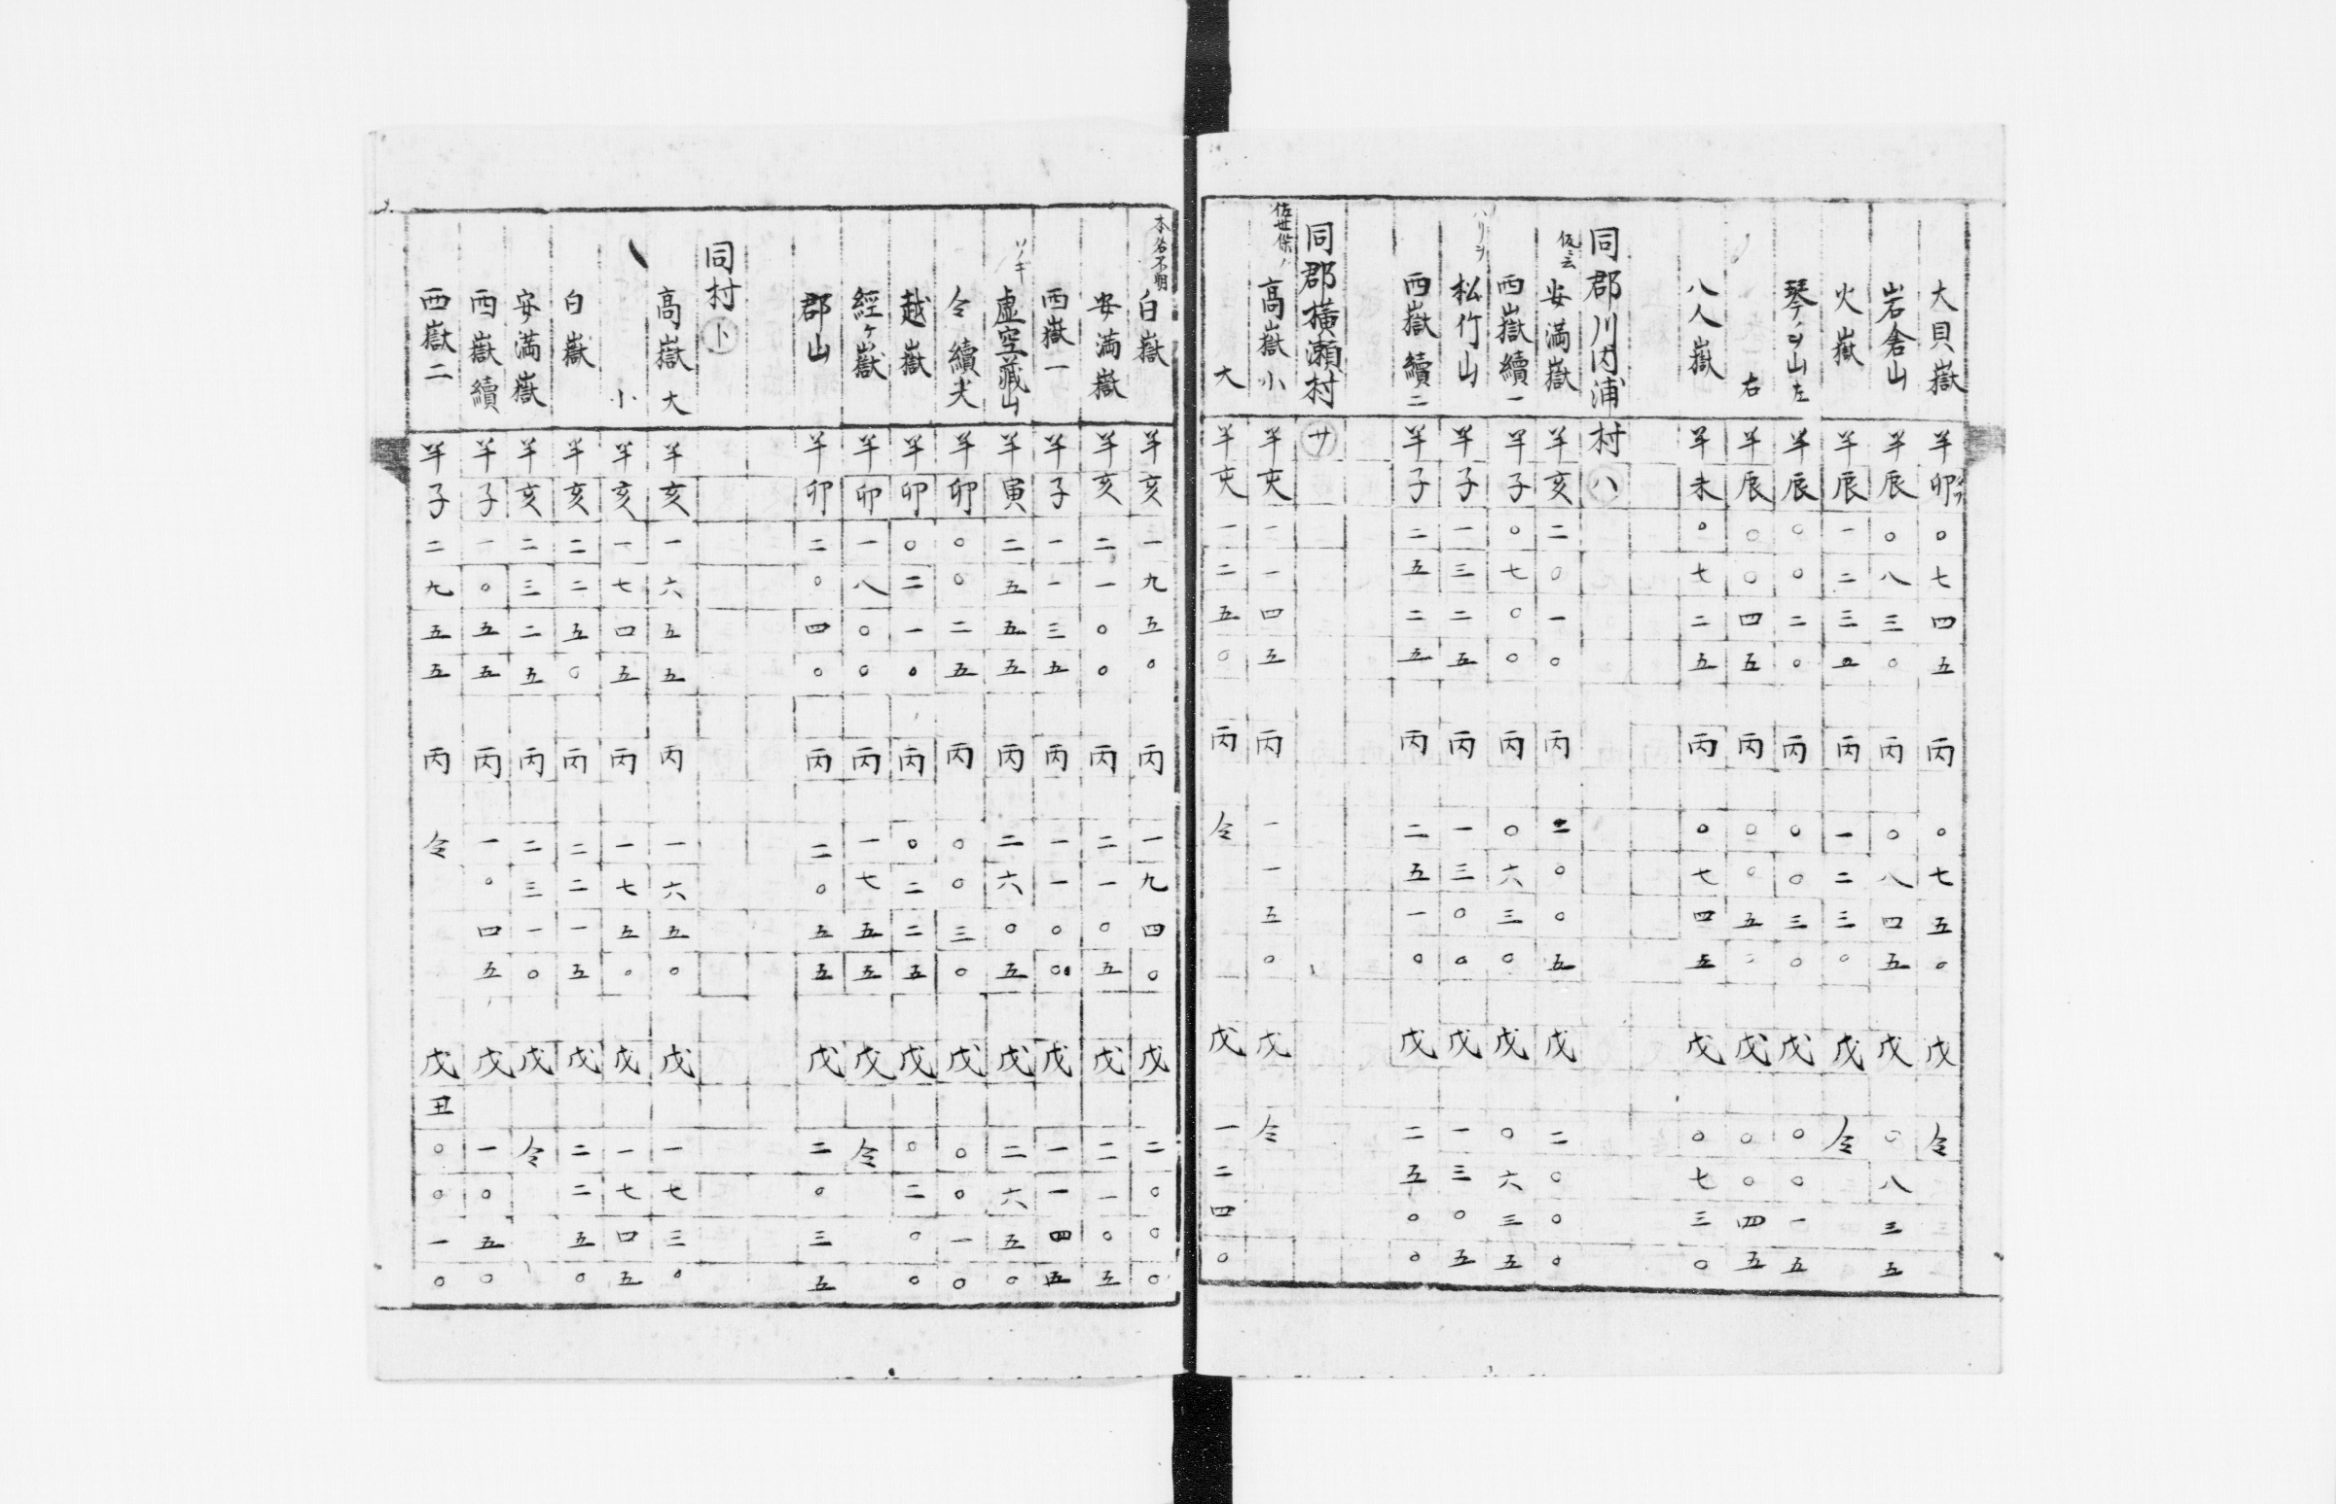 大貝嶽 羊卯 〇七四五 丙 〇七五〇 戊 仝
岩倉山 羊辰 〇八三〇 丙 〇八四五 戊 〇八三五
火嶽 羊辰 一二三五 丙 一二三〇 戊 仝
琴ノ山左 羊辰 〇〇二〇 丙 〇〇三〇 戊 〇〇一五
〃 右 羊辰 〇〇四五 丙 〇〇五〇 戊 〇〇四五
八人嶽 羊未 〇七二五 丙 〇七四五 戊 〇七三〇
同郡川内浦村 ハ
仮ニ云 安満嶽 羊亥 二〇一〇 丙 二〇〇五 戊 二〇〇〇
西嶽續一 羊子 〇七〇〇 丙 〇六三〇 戊 〇六三五
ハリヲ 松竹山 羊子 一三二五 丙 一三〇〇 戊 一三〇五
西嶽續二 羊子 二五二五 丙 二五一〇 戊 二五〇〇
同郡横瀬村 サ
佐世保ノ 高嶽小 羊亥 一一四五 丙 一一五〇 戊 仝
大 羊亥 一二五〇 丙 仝 戊 一二四〇
本名不明 白嶽 羊亥 一九五〇 丙 一九四〇 戊 二〇〇〇
安満嶽 羊亥 二一〇〇 丙 二一〇五 戊 二一〇五
西嶽一 羊子 一一三五 丙 一一〇〇 戊 一一四五
ソノキ 虚空蔵山 羊寅 二五五五 丙 二六〇五 戊 二六五〇
仝續尖 羊卯 〇〇二五 丙 〇〇三〇 戊 〇〇一〇
越嶽 羊卯 〇二一〇 丙 〇二二五 戊 〇二〇〇
經ケ嶽 羊卯 一八〇〇 丙 一七五五 戊 仝
郡山 羊卯 二〇四〇 丙 二〇五五 戊 二〇三五
同村 ト
高嶽大 羊亥 一六五五 丙 一六五〇 戊 一七三〇
〃 小 羊亥 一七四五 丙 一七五〇 戊 一七四五
白嶽 羊亥 二二五〇 丙 二二一五 戊 二二五〇
安満嶽 羊亥 二三二五 丙 二三一〇 戊 仝
西嶽續 羊子 一〇五五 丙 一〇四五 戊 一〇五〇
西嶽二 羊子 二九五五 丙 仝 戊 丑〇〇一〇